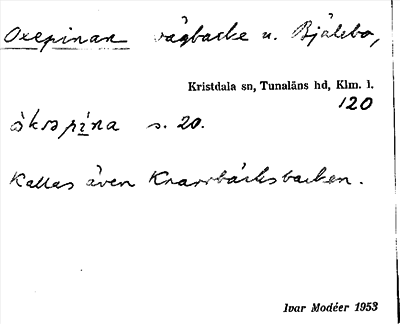 Oxepinan vägbacke u. Bjälebo,
Kristdala sn, Tunaläns hd, Klm. l.
120
åkspina s. 20.
Kallas även Knarrbäcksbacken.
Ivar Modéer 1953